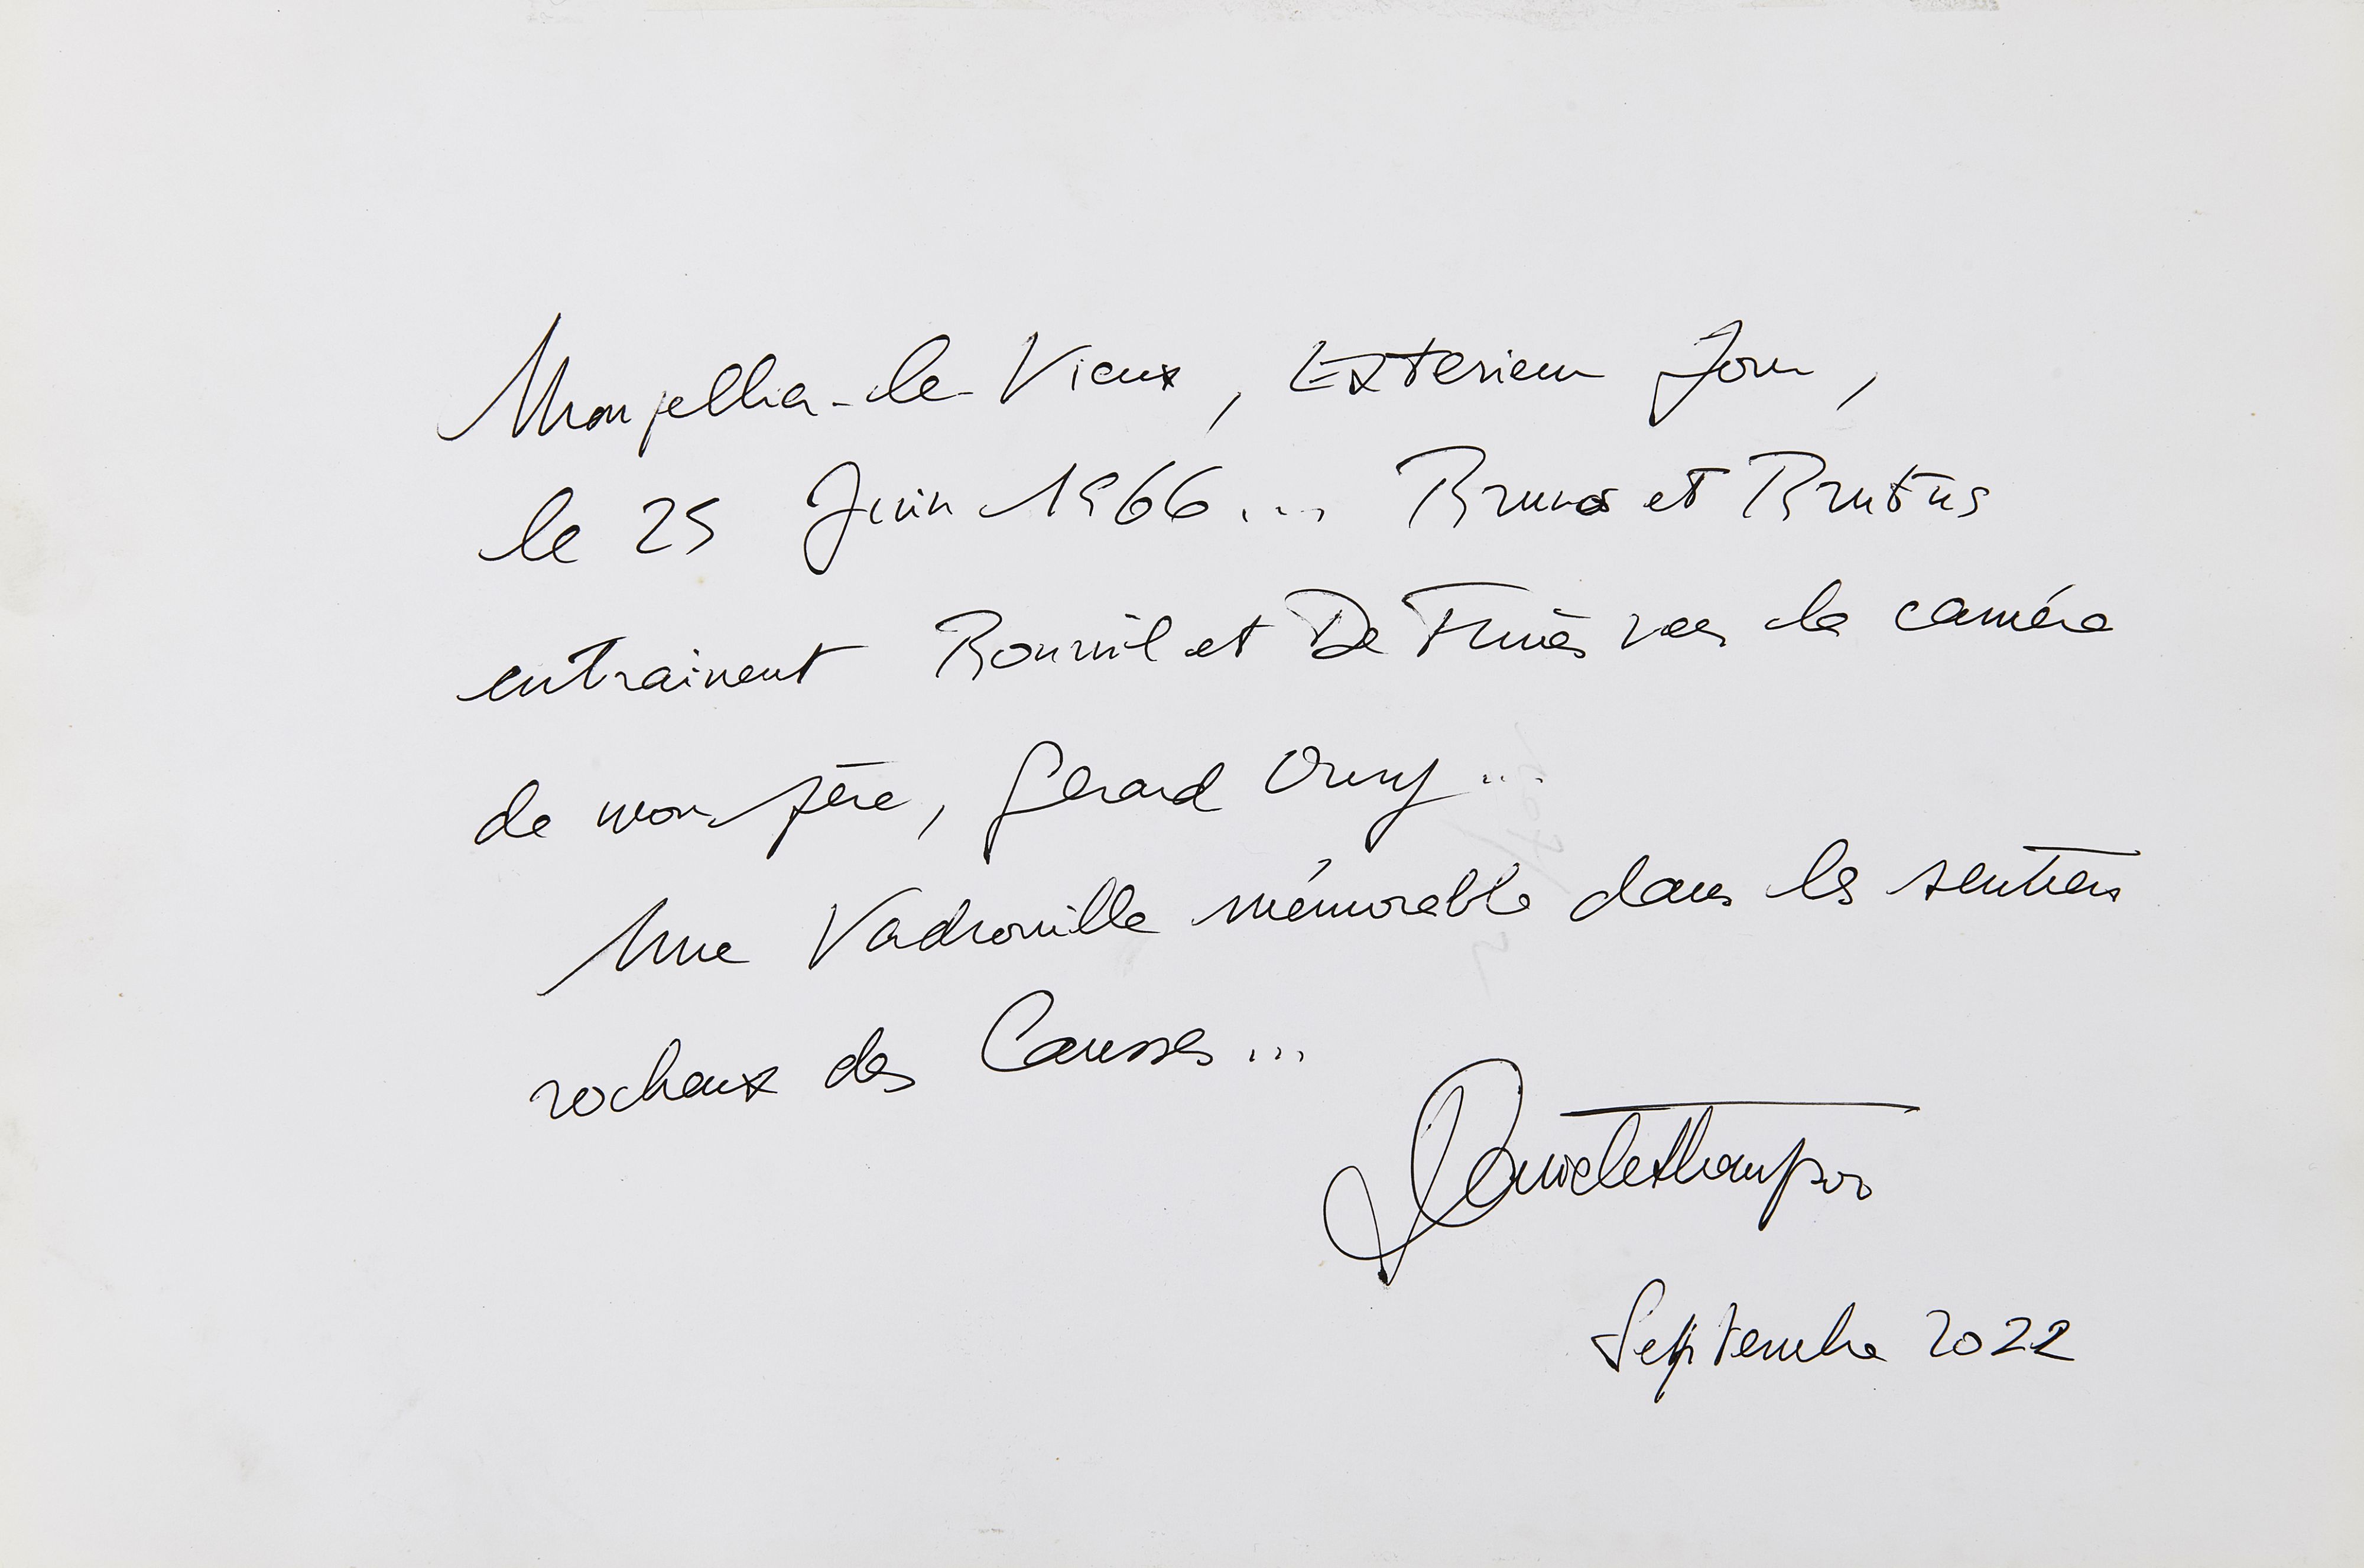 Montpellier-le-Vieux, Exterieur Jour,
le 25 Juin 1966... Bruno et Brutus
entrainent Bourvil et De Funès vers la caméra
de mon père, Gérard Oury...
Une Vadrouille mémorable dans les sentiers
rocheux des Causses...
Danièle Thompson
Septembre 2022